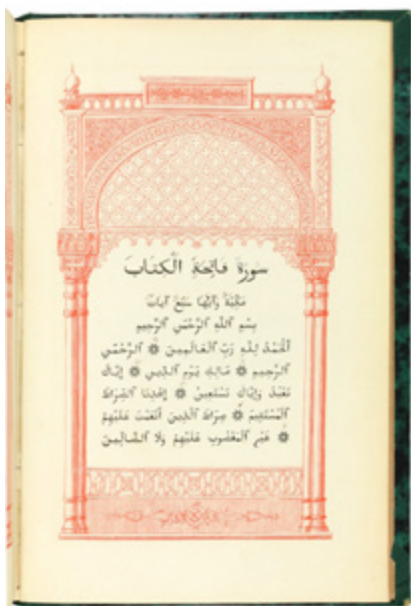 سورة فاتحة الكتاب
مكية وآيها سبع آيات
بسم الله الرحمن الرحيم
الحمد لله رب العالمين ۞ الرحمن
الرحيم ۞ مالك يوم الدين ۞ إياك
نعبد وإياك نستعين ۞ اهدنا الصراط
المستقيم ۞ صراط الذين أنعمت عليهم
۞ غير المغضوب عليهم ولا الضالين